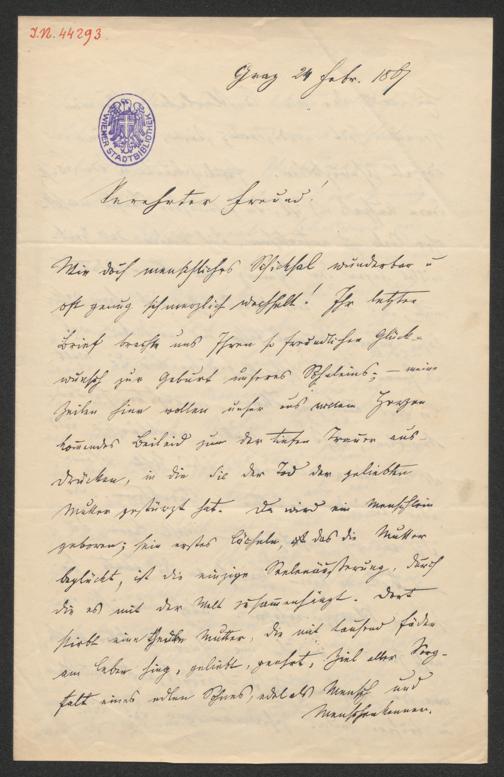 I.N. 44293
Graz 24 Febr. 1887
WIENER STADTBIBLIOTHEK
Verehrter Freund!
Wie doch menschliches Schicksal wunderbar u
oft genug schmerzlich wechselt! Ihr letzter
Brief brachte uns Ihren so freundlichen Glück-
wunsch zur Geburt unseres Söhnleins; – meine
Zeilen hier wollen unser aus vollem Herzen
kommendes Beileid zum der tiefen Trauer aus-
drücken, in die Sie der Tod der geliebten
Mutter gestürzt hat. Da wird ein Menschlein
geboren; sein erstes Lächeln, das die Mutter
beglückt, ist die einzige Seelenäußerung, durch
die es mit der Welt zusammenhängt. Dort
stirbt eine theure Mutter, die mit tausend Fäden
am Leben hing, geliebt, geehrt, Ziel aller Sorg-
falt eines edlen Sohnes, edel als Mensch und
Menschenkenner.